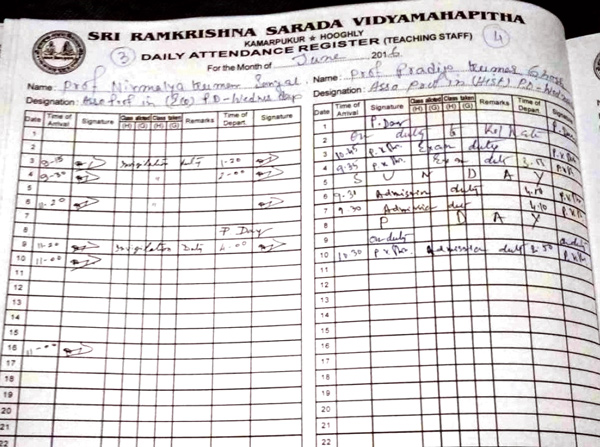 SRI RAMKRISHNA SARADA VIDYAMAHAPITHA
KAMARPUKUR ★ HOOGHLY
3 DAILY ATTENDANCE REGISTER (TEACHING STAFF) 4
For the Month of June 2016
Name: Prof Nirmalya Kumar
Designation: Asso Prof in (Eco) P.D-Wednesday
Date Time of Arrival Signature Class alloted (H) (G) Class taken (H) (G) Remarks Time of Depart. Signature
1
2
3 9-15 Invigilation Duty 1-20
4 9-30 " 2-00
5
6 11-20 "
7
8 P Day
9 11-20 Invigilation Duty 4-00
10 11-00
11
12
13
14
15
16 11-00
17
18
19
20
21
22
Name: Prof Pradip Kumar Ghosh
Designation: Asso Prof in (Hist) P.D-Wednes
Date Time of Arrival Signature Class alloted (H) (G) Class taken (H) (G) Remarks Time of Depart. Signature
1 P. Day
2 On duty to Kolkata
3 10.45 Exam duty
4 9.35 Exam
5 S U N D A Y
6 9.30 Admission duty 4.00
7 9.30 Admission duty 4.10
8 P D A Y
9 On duty
10 10.30 Admission duty 3.50
11
12
13
14
15
16
17
18
19
20
21
22